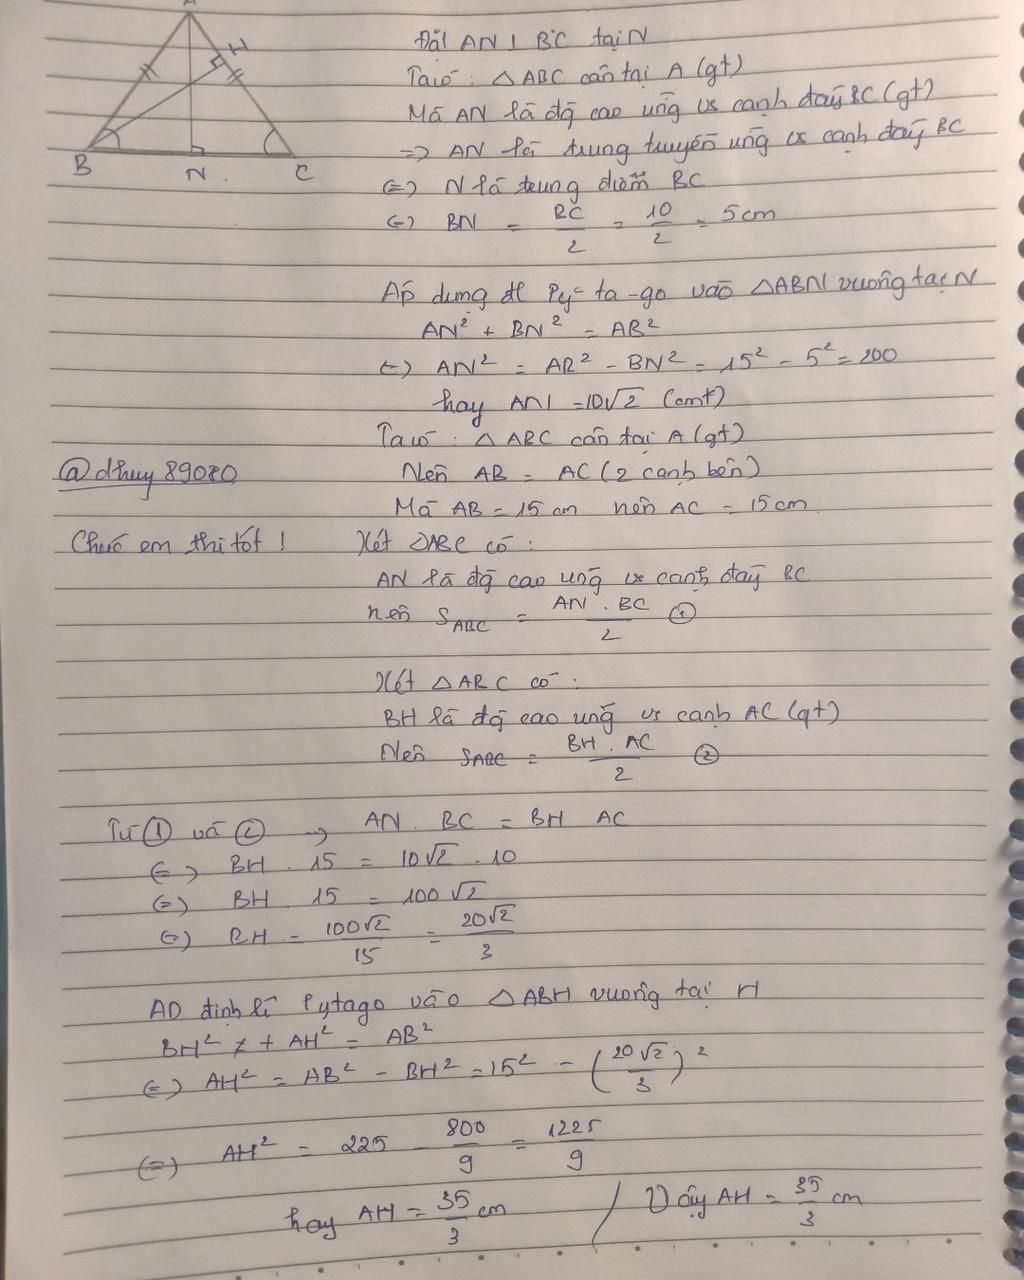 A
H
B
N
C
Đặt AN ⊥ BC tại N
Ta có : △ ABC cân tại A (gt)
Mà AN là đg cao ứng vs cạnh đáy BC (gt)
=> AN là trung tuyến ứng vs cạnh đáy BC
<=> N là trung điểm BC
<=> BN = BC/2 = 10/2 = 5cm
Áp dụng đl Py-ta-go vào △ABN vuông tại N
AN² + BN² = AB²
<=> AN² = AB² - BN² = 15² - 5² = 200
hay AN = 10√2 (cmt)
Ta có : △ ABC cân tại A (gt)
@dthuy89080
Nên AB = AC (2 cạnh bên)
Mà AB = 15 cm nên AC = 15cm
Chúc em thi tốt !
Xét △ABC có :
AN là đg cao ứng vs cạnh đáy BC
nên S_ABC = AN . BC/2 ①
Xét △ ABC có :
BH là đg cao ứng vs cạnh AC (gt)
Nên S_ABC = BH . AC/2 ②
Từ ① và ② → AN . BC = BH AC
<=> BH . 15 = 10√2 . 10
<=> BH . 15 = 100√2
<=> BH = 100√2/15 = 20√2/3
AD định lí Pytago vào △ABH vuông tại H
BH² + AH² = AB²
<=> AH² = AB² - BH² = 15² - (20√2/3)²
<=> AH² = 225 - 800/9 = 1225/9
hay AH = 35/3 cm / Vậy AH = 35/3 cm